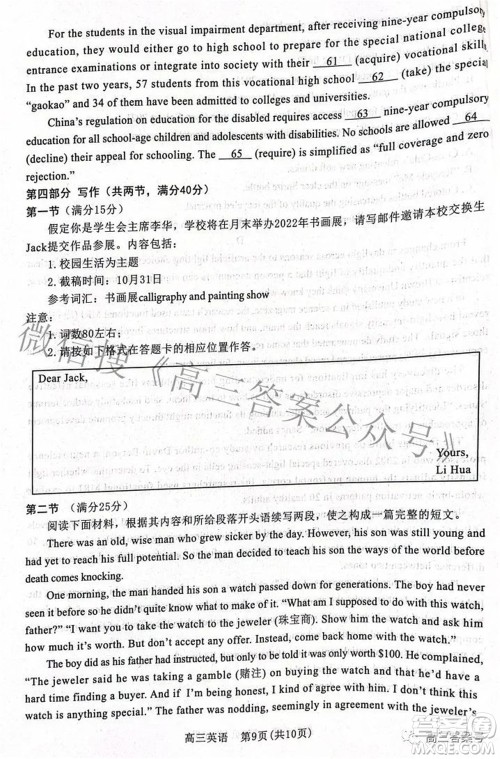 For the students in the visual impairment department, after receiving nine-year compulsory
education, they would either go to high school to prepare for the special national college
entrance examinations or integrate into society with their 61 (acquire) vocational skills.
In the past two years, 57 students from this vocational high school 62 (take) the special
“gaokao” and 34 of them have been admitted to colleges and universities.
China's regulation on education for the disabled requires access 63 nine-year compulsory
education for all school-age children and adolescents with disabilities. No schools are allowed 64
(decline) their appeal for schooling. The 65 (require) is simplified as “full coverage and zero
rejection.”
第四部分 写作（共两节，满分40分）
第一节（满分15分）
假定你是学生会主席李华，学校将在月末举办2022年书画展，请写邮件邀请本校交换生
Jack提交作品参展。内容包括：
1. 校园生活为主题
2. 截稿时间：10月31日
参考词汇：书画展calligraphy and painting show
注意：
1. 词数80左右；
2. 请按如下格式在答题卡的相应位置作答。
Dear Jack,
Yours,
Li Hua
微信搜《高三答案公众号》
第二节 （满分25分）
阅读下面材料，根据其内容和所给段落开头语续写两段，使之构成一篇完整的短文。
There was an old, wise man who grew sicker by the day. However, his son was still young and
had yet to reach his full potential. So the man decided to teach his son the ways of the world before
death comes knocking.
One morning, the man handed his son a watch passed down for generations. The boy had
never seen this before and didn't quite understand what to make of it. “What am I supposed to do with this watch,
father?” “I want you to take the watch to the jeweler (珠宝商). Show him the watch and ask him
how much it's worth. But don't accept any offer. Instead, come back home with the watch.”
The boy did as his father had instructed, but only to be told it was worth $100. He exclaimed,
“The jeweler said he was taking a gamble (赌注) on buying the watch because he'd have a
hard time finding a buyer. And if I'm being honest, I kind of agree with him, father. This watch isn't
anything special.” The father smiled and said, “Okay. Now I want you to take the watch to the pawn
高三英语 第9页（共10页）
高三答案号